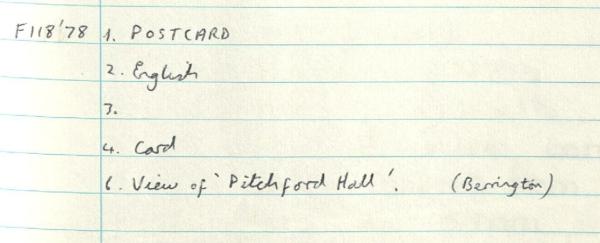 F118'78 1. POSTCARD
2. English
3.
4. Card
6. View of 'Pitchford Hall'. (Berrington)